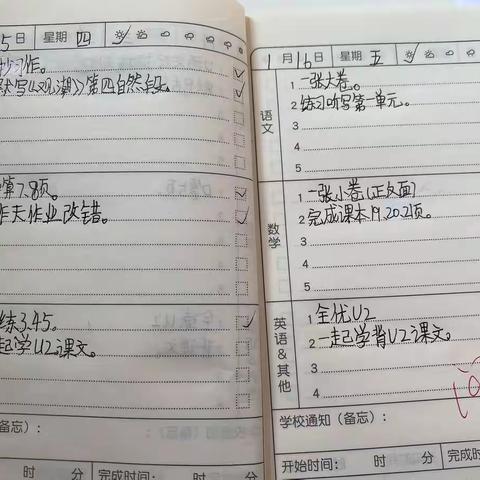 5日 星期 四
抄习作。
默写《观潮》第四自然段。
3.
4.
5.
算7.8页。
昨天作业改错。
练3.4.5。
起学U2课文。
备忘）：
时 分 完成时间： 时 分
1月16日 星期 五
语文
1 一张大卷。
2 练习听写第一单元。
3
4
5
数学
1 一张小卷（正反面）
2 完成课本19.20.21页。
3
4
5
英语&其他
1 全优U2
2 一起学背U2课文。
3
4
学校通知（备忘）：
开始时间： 时 分 完成时